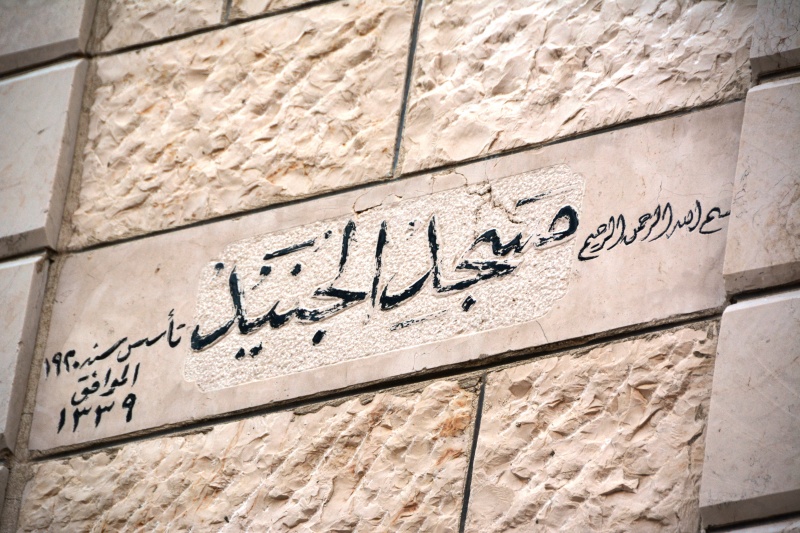 بسم الله الرحمن الرحيم
مسجد الجنيد
تأسس سنة ١٩٢٠
الموافق
١٣٣٩